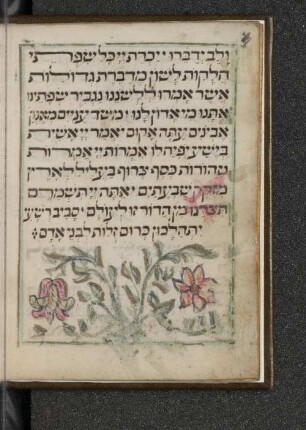 ולב ידברו יכרת יי כל שפתי
חלקות לשון מדברת גדולות
אשר אמרו ללשננו נגביר שפתינו
אתנו מי אדון לנו משד עניים מאנקת
אביונים עתה אקום יאמר יי אשית
בישע יפיח לו אמרות יי אמרות
טהורות כסף צרוף בעליל לארץ
מזקק שבעתים אתה יי תשמרם
תצרנו מן הדור זו לעולם סביב רשעי׳
יתהלכון כרום זלות לבני אדם׃